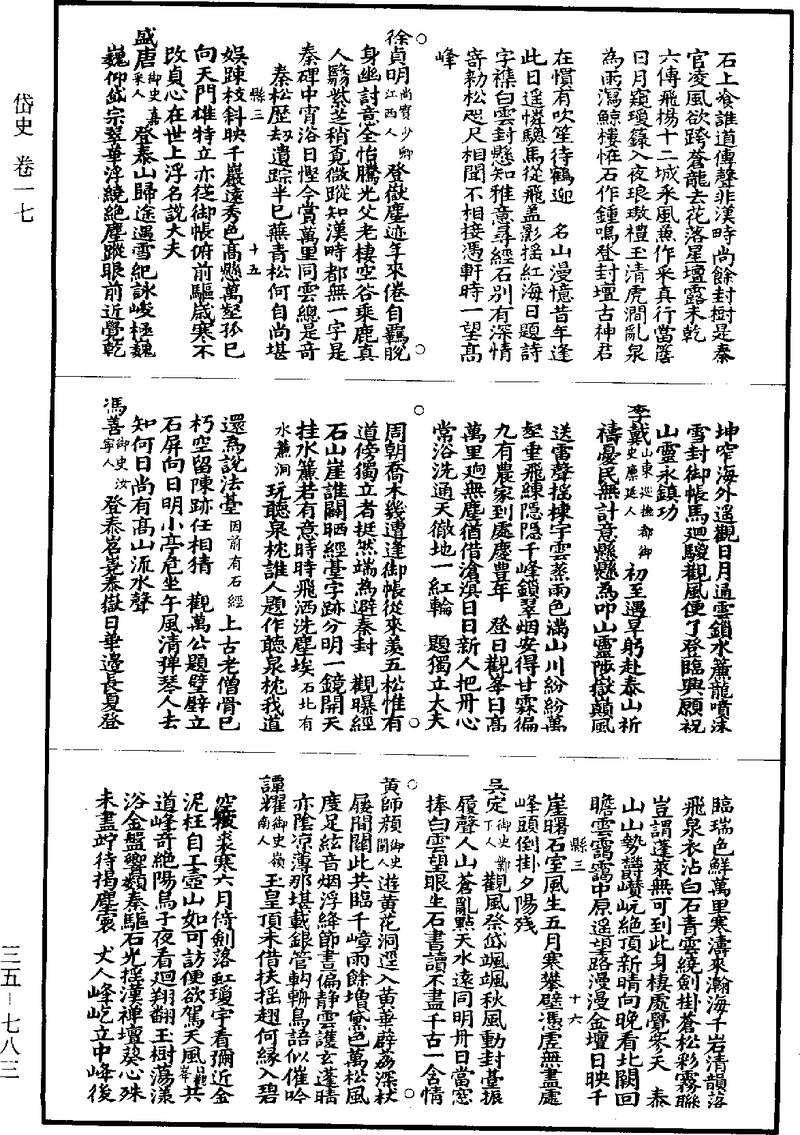 岱史 卷一七
石上飡誰道傳聲非漢時尚餘封樹是秦
官凌風欲跨蒼龍去花落星壇露未乾
六傳飛揚十二城采風魚作采真行當簷
日月窺瓊籙入夜琅璈禮玉清虎澗亂泉
為雨瀉鯨樓恠石作鍾鳴登封壇古神君
在慣有吹笙待鶴迎 名山漫憶昔年逢
此日遥憐驄馬從飛盖影揺紅海日題詩
字襍白雲封懸知雅意尋經石別有深情
寄勑松咫尺相聞不相接憑軒時一望髙
峰
○徐貞明尚寳少卿江西人 登嶽塵迹年來倦自羈脫○
身幽討意全怡騰光父老棲空谷乗鹿真
人翳紫芝稍覔微蹤知漢時都無一字是
秦碑中宵浴日慳今賞萬里同雲總是竒
秦松歴刼遺踪半巳蕪青松何自尚堪
縣三 十五
娛踈枝斜映千巖逺秀色髙懸萬壑孤巳
向天門雄特立亦從御帳俯前驅歲寒不
改貞心在世上浮名說大夫
盛唐御史嘉禾人 登泰山歸途遇雪紀詠峻極巍
巍仰岱宗翠華浮繞絶塵蹤眼前近覺乾
坤窄海外遥觀日月通雲鎖水簾龍噴沫
雪封御帳馬廻騣觀風便了登臨興願祝
山靈永鎮功
李戴山東廵撫都御史廪延人 初至遇旱躬赴泰山祈
禱憂民無計意懸懸為叩山靈陟嶽巔風
送雷聲揺棟宇雲蒸雨色滿山川紛紛萬
壑垂飛練隠隠千峰鎖翠烟安得甘霖徧
九有農家到處慶豊年 登日觀峯日髙
萬里逈無塵猶借滄溟日日新人把丹心
常浴洗通天徹地一紅輪 題獨立大夫
○周朝喬木幾遭逢御帳從來羡五松惟有○
道傍獨立者挺然端為避秦封 觀曝經
石山崖誰闢晒經臺字跡分明一鏡開天
挂水簾若有意時時飛洒洗塵埃石北有
水簾洞 玩聽泉枕誰人題作聽泉枕我道
還為說法臺因前有石經 上古老僧骨巳
朽空留陳跡任相猜 觀萬公題壁壁立
石屏向日明小亭危坐午風清弹琴人去
知何日尚有髙山流水聲
馮善御史汝寧人 登泰嵓嵓泰嶽日華邉長夏登
臨瑞色鮮萬里寒濤來瀚海千岩清韻落
飛泉衣沾白石青雲繞劍掛蒼松彩霧聮
豈謂蓬萊無可到此身棲處覺來天 泰
山山勢欝巑岏絶頂新晴向晚看北闕回
瞻雲靄靄中原遥望路漫漫金壇日映千
縣三 十六
崖曙石室風生五月寒攀壁憑虗無盡處
峰頭倒掛夕陽残
吳定御史鄭下人 觀風登岱颯颯秋風動封臺振
履聲人山蒼亂點天水逺同明丹日當窓
捧白雲望眼生石書讀不盡千古一含情
○黄師顔御史閩人 遊黄花洞逕入黄華薜荔深杖○
屐間關此共臨千嶂雨餘増黛色萬松風
度足絃音烟浮絳節晝偏静雲護玄蓬晴
亦陰凉薄那堪載銀管軥輈鳥語似催吟
譚耀御史嶺南人 玉皇頂未借扶揺趙何縁入碧
空披裘寒六月倚劍落虹瓊宇看彌近金
泥枉自工壺山如可訪便欲駕天風日觀峯 共
道峰竒絶陽烏子夜看廻翔翻玉樹蕩漾
浴金盤響䫫秦驅石光揺漢禪壇葵心殊
未盡竚待掲塵寰 丈人峰屹立中峰後
三五－七八三